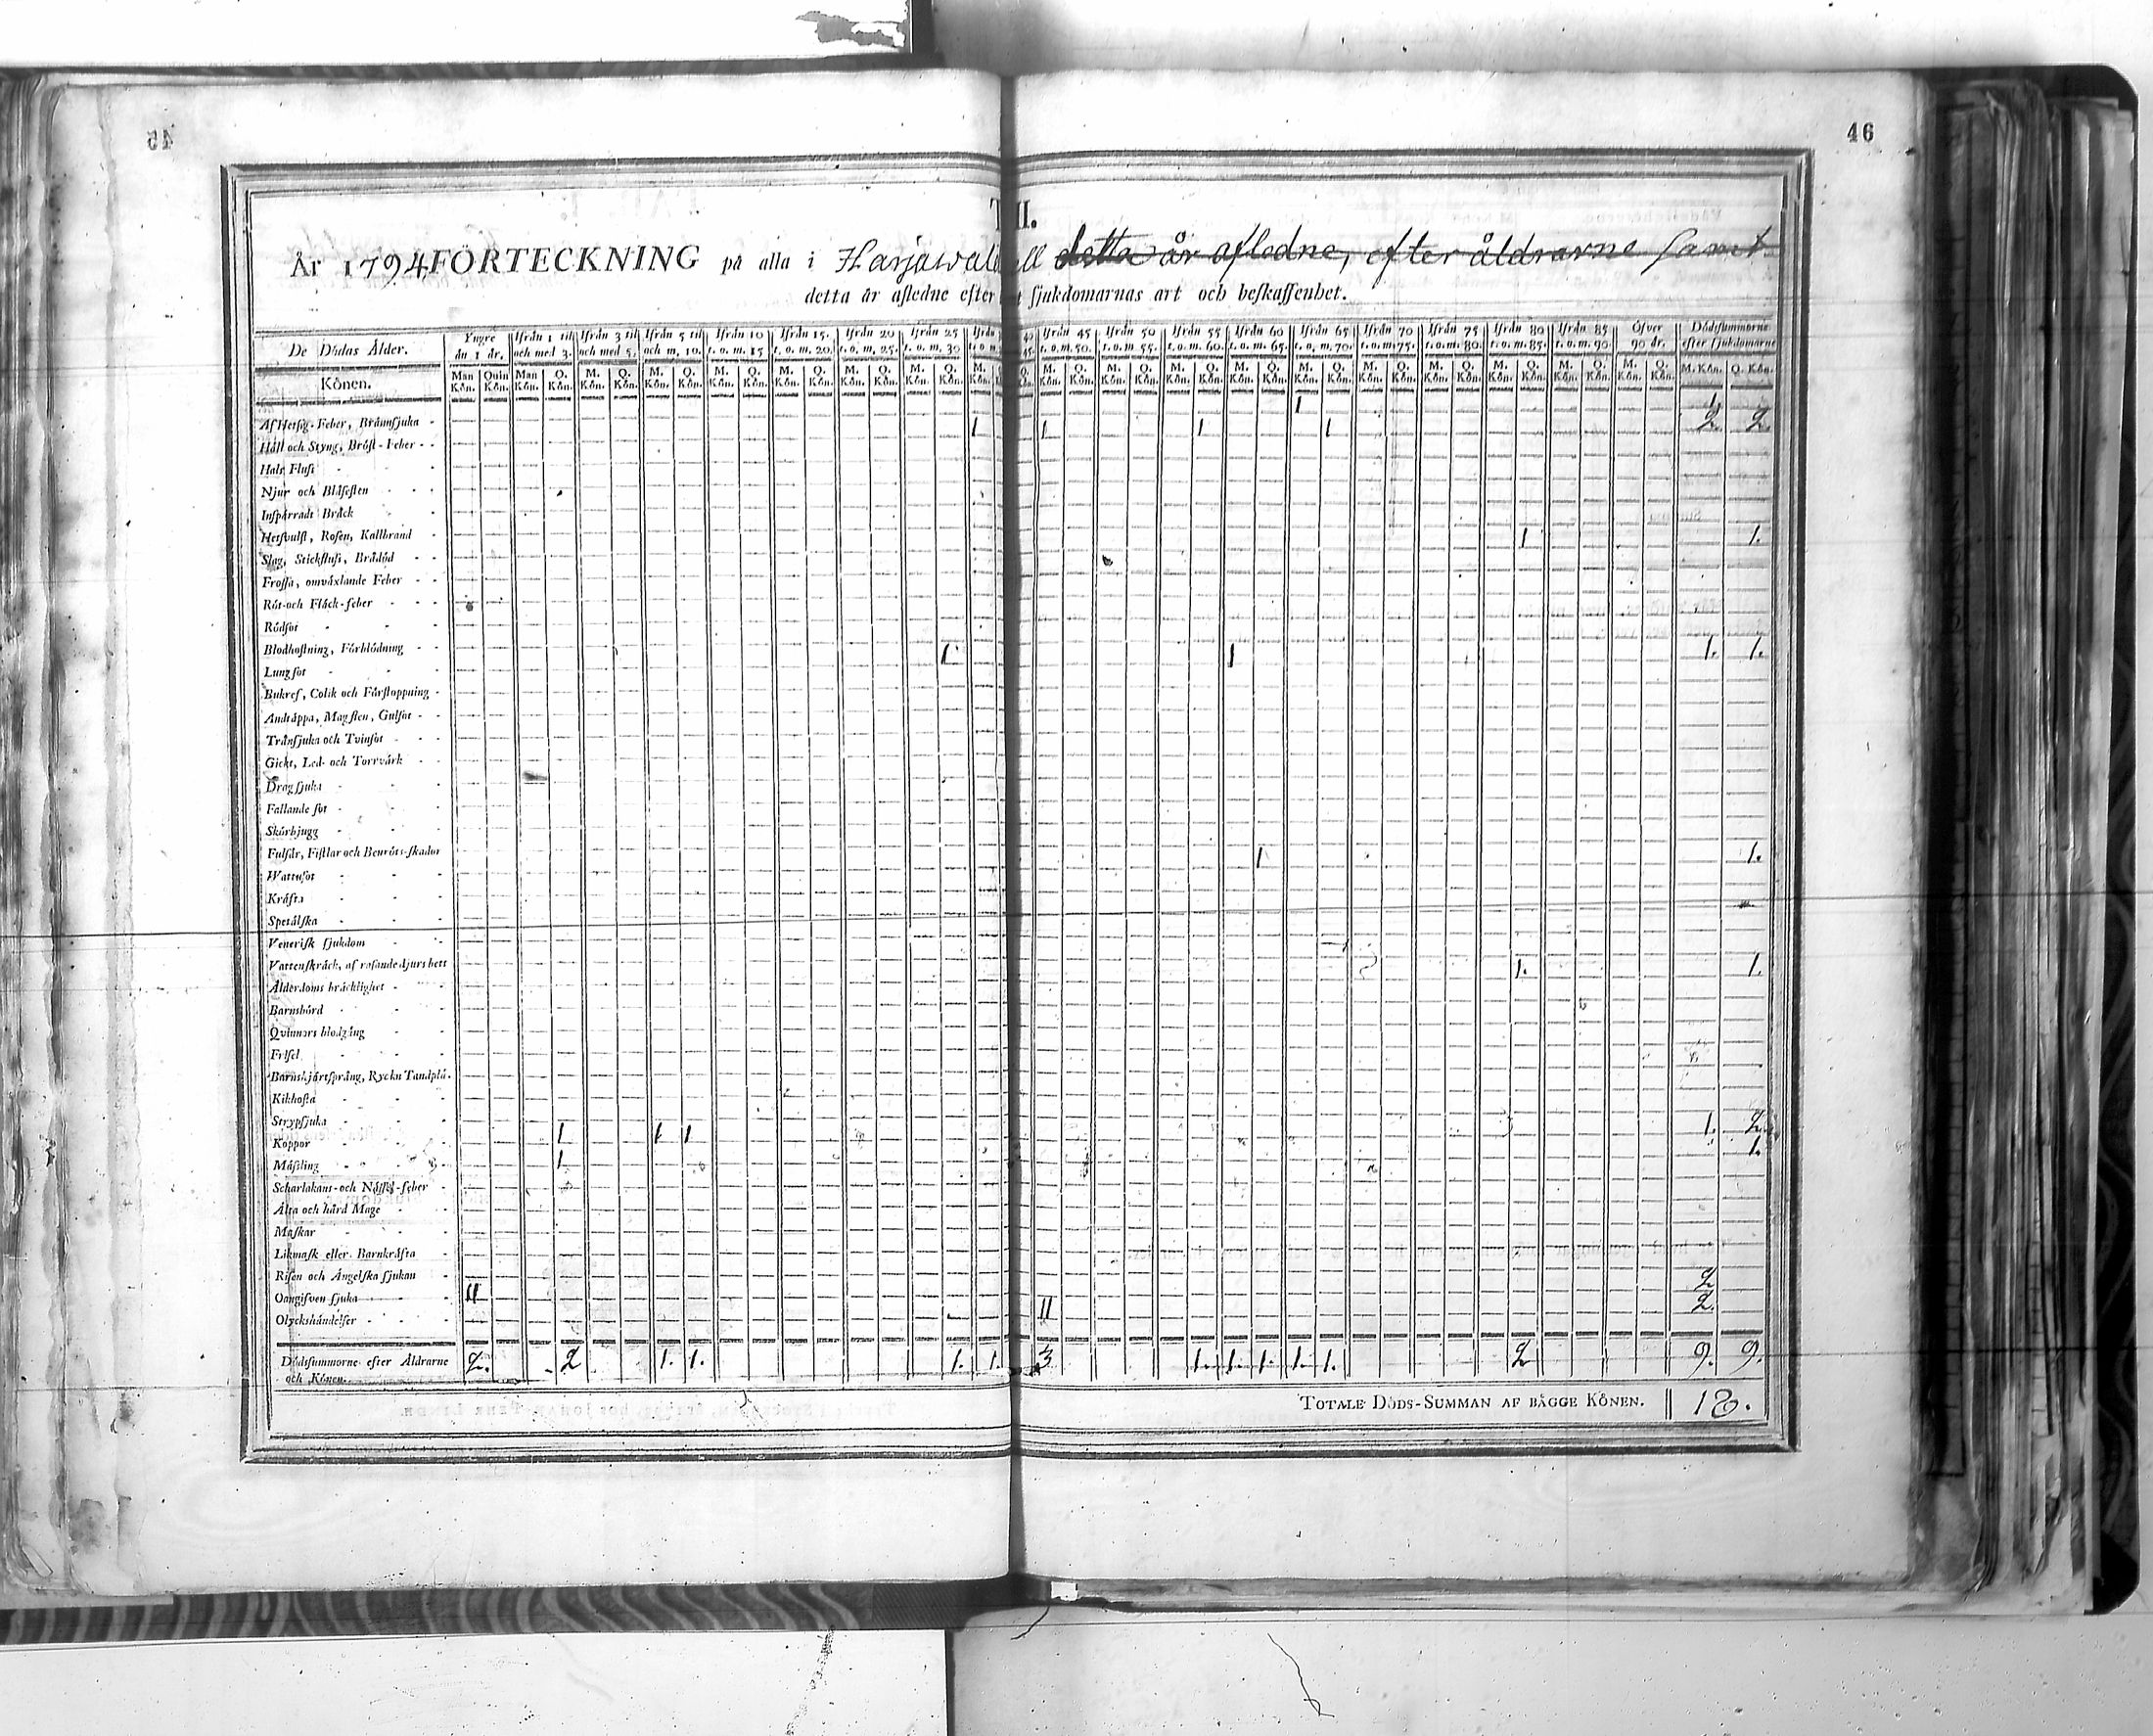 46
År 1794 FÖRTECKNING på alla i Harjawald ll detta år afledne, efter åldrarne samt
detta år afledne efter t sjukdomarnas art och beskaffenhet.
De Dödas Ålder. Yngre än 1 år. Ifrån 1 til och med 3. Ifrån 3 til och med 5. Ifrån 5 til och m, 10. Ifrån 10 t. o. m. 15 Ifrån 15. t. o. m. 20. Ifrån 20 t. o. m. 25. Ifrån 25 t. o. m. 30 Ifrån 45 t. o. m. 50. Ifrån 50 t. o. m. 55. Ifrån 55 t. o. m. 60. Ifrån 60 t. o. m. 65. Ifrån 65 t. o. m. 70. Ifrån 70 t. o. m. 75. Ifrån 75 t. o. m. 80. Ifrån 80 t. o. m. 85. Ifrån 85 t. o. m. 90. Öfver 90 år. Dödssummorne efter sjukdomarne
Könen. Man Kön. Quin Kön. Man Kön. Q. Kön. M. Kön. Q. Kön. M. Kön. Q. Kön. M. Kön. Q. Kön. M. Kön. Q. Kön. M. Kön. Q. Kön. M. Kön. Q. Kön. M. Kön. M. Kön. Q. Kön. M. Kön. Q. Kön. M. Kön. Q. Kön. M. Kön. Q. Kön. M. Kön. Q. Kön. M. Kön. Q. Kön. M. Kön. Q. Kön. M. Kön. Q. Kön. M. Kön. Q. Kön. M. Kön. Q. Kön. M. Kön. Q. Kön.
1 1
Af Hetsig-Feber, Brännsjuka 1 1 1 1 2 2
Håll och Styng, Bröst-Feber
Hals Fluss
Njur och Blåsesten
Inspärradt Bråck
Hetsvulst, Rosen, Kallbrand 1 1.
Slag, Stickfluss, Bråddöd
Frossa, omväxlande Feber
Röt-och Fläck-feber
Rödsot
Blodhostning, Förblödning 1 1 1. 1.
Lungsot
Bukref, Colik och Förstoppning
Andtäppa, Magsten, Gulsot
Trånsjuka och Tvinsot
Gickt, Led- och Torrvärk
Dragsjuka
Fallande sot
Skörbjugg
Fulsår, Fistlar och Benröts-skador 1 1.
Wattusot
Kräfta
Spetälska
Venerisk sjukdom
Vattenskräck, af rasande djurs bett 1. 1.
Ålderdoms bräcklighet
Barnsbörd
Qvinnors blodgång
Frisel
Barnshjärtsprång, Ryckn Tandplå.
Kikhosta
Strypsjuka 1. 2
Koppor 1 1 1 1.
Mässling 1
Scharlakans-och Nässel-feber
Älta och hård Mage
Maskar
Likmask eller Barnkräfta
Risen och Ängelska sjukan 2
Oangifven sjuka 11 2.
Olyckshändelser 11
Dödssummorne efter Åldrarne och Könen. 2. 2 1. 1. 1. 1. 3 1. 1. 1. 1. 1. 2 9. 9.
TOTALE DÖDS-SUMMAN AF BÄGGE KÖNEN. 18.